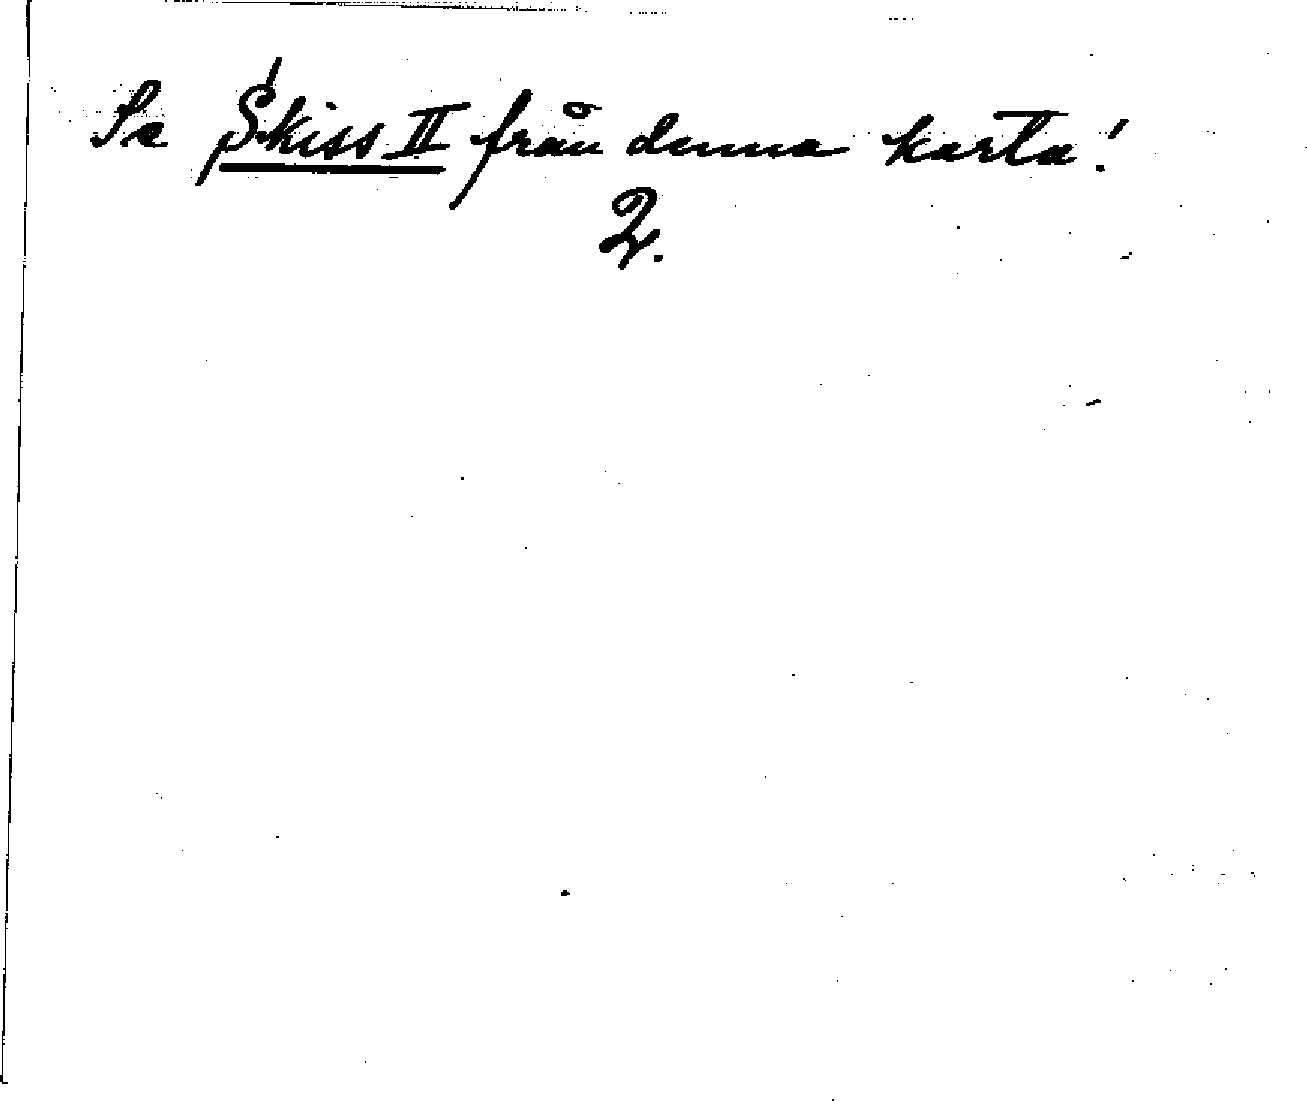 Se Skiss II från denna karta!
2.